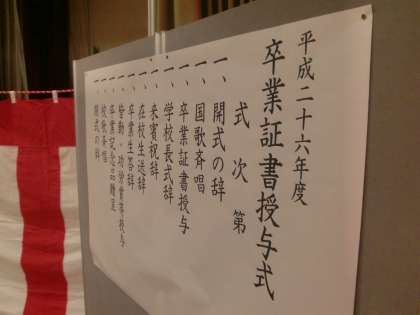 平成二十六年度
卒業証書授与式
式次第
一、開式の辞
一、国歌斉唱
一、卒業証書授与
一、学校長式辞
一、来賓祝辞
一、在校生送辞
一、卒業生答辞
一、皆勤・功労賞等授与
一、卒業記念品贈呈
一、校歌斉唱
一、閉式の辞